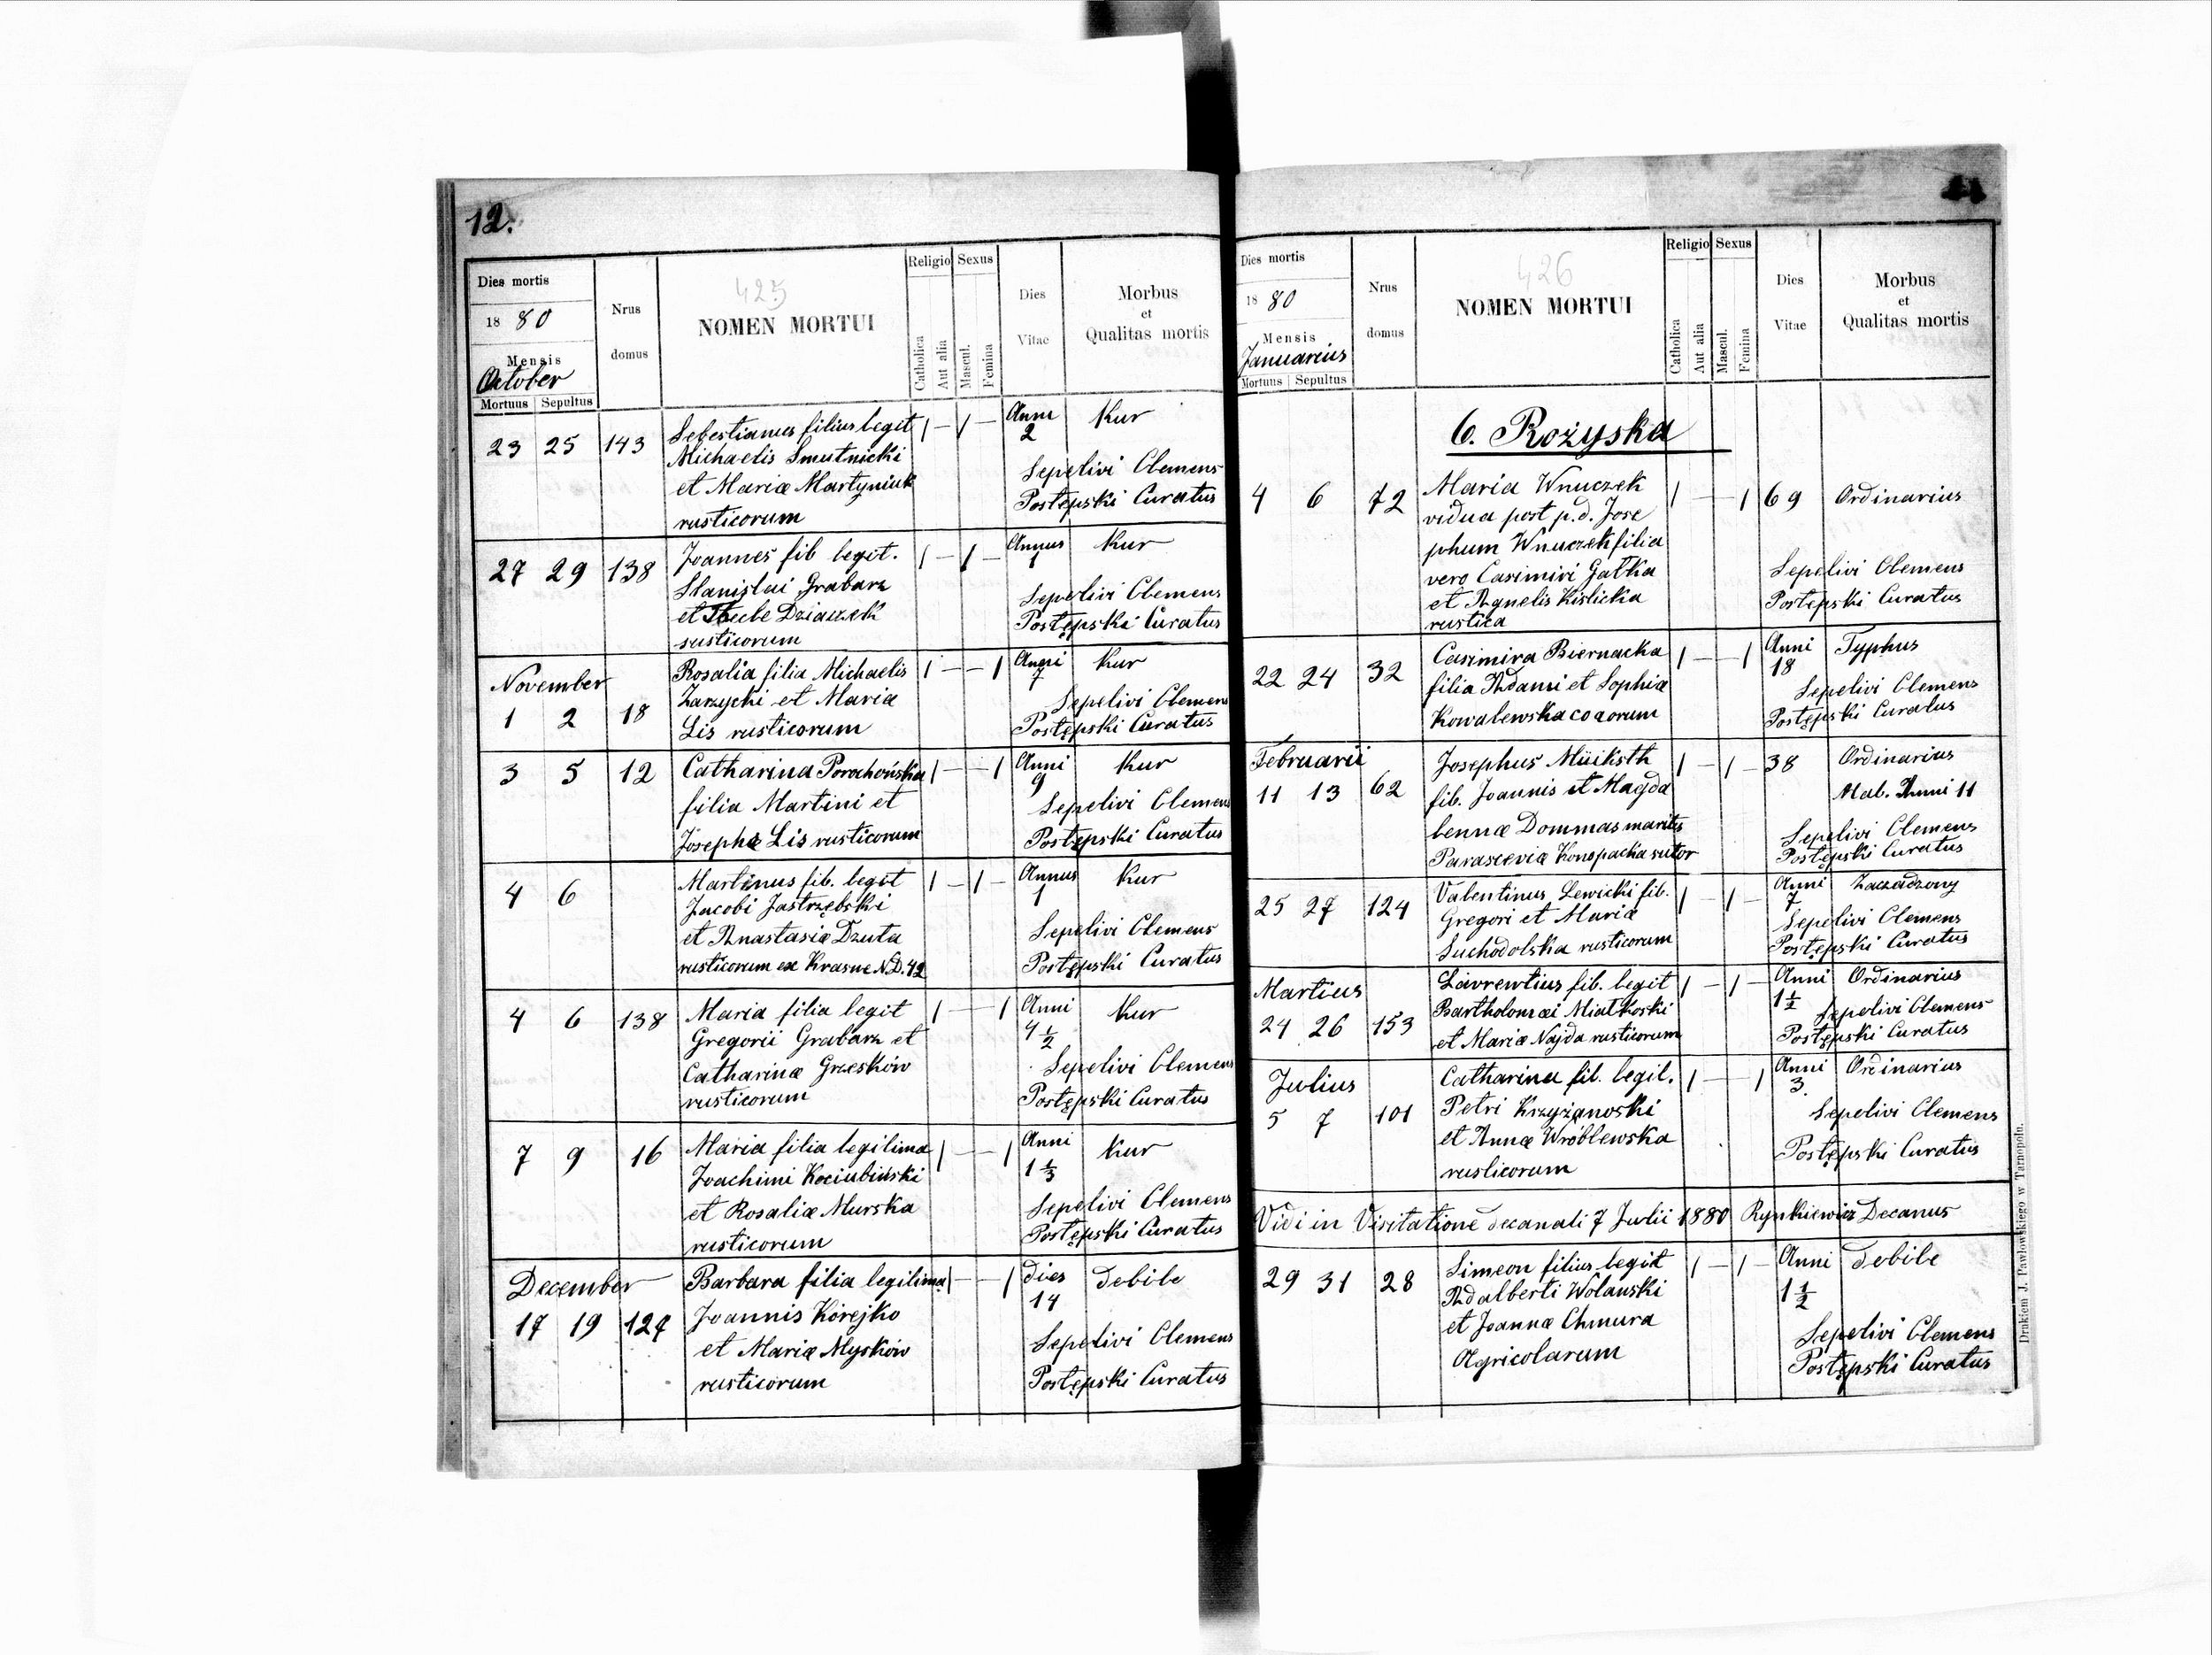 12.
Dies mortis
18 80
Mensis
October
Mortuus | Sepultus
Nrus
domus
425
NOMEN MORTUI
Religio
Catholica
Aut alia
Sexus
Mascul.
Femina
Dies
Vitae
Morbus
et
Qualitas mortis
23 25 143 Sebestianus filius legit 1 – 1 – Anni Kur
2
Michaelis Smutnicki
et Mariæ Martyniuk
rusticorum
Sepelivi Clemens
Postępski Curatus
27 29 138 Joannes fil legit. 1 – 1 – Annus Kur
1
Stanislai Grabarz
et Theclæ Dziaczek
rusticorum
Sepelivi Clemens
Postępski Curatus
November
1 2 18 Rosalia filia Michaelis 1 – – 1 Anni Kur
7
Zarzycki et Maria
Lis rusticorum
Sepelivi Clemens
Postępski Curatus
3 5 12 Catharina Porochońska 1 – – 1 Anni Kur
9
filia Martini et
Josephæ Lis rusticorum
Sepelivi Clemens
Postępski Curatus
4 6 Martinus fil. legit 1 – 1 – Annus Kur
1
Jacobi Jastrzębski
et Anastasiæ Dzuta
rusticorum ex Krasne N.D. 42
Sepelivi Clemens
Postępski Curatus
4 6 138 Maria filia legit 1 – – 1 Anni Kur
4 1/2
Gregorii Grabarz et
Catharinæ Grzesków
rusticorum
Sepelivi Clemens
Postępski Curatus
7 9 16 Maria filia legitima 1 – – 1 Anni Kur
1 1/3
Joachimi Kociubiński
et Rosaliæ Murska
rusticorum
Sepelivi Clemens
Postępski Curatus
December
17 19 127 Barbara filia legitima 1 – – 1 dies debile
14
Joannis Korejko
et Mariæ Mysków
rusticorum
Sepelivi Clemens
Postępski Curatus
Dies mortis
18 80
Mensis
Januarius
Mortuus | Sepultus
Nrus
domus
426
NOMEN MORTUI
Religio
Catholica
Aut alia
Sexus
Mascul.
Femina
Dies
Vitae
Morbus
et
Qualitas mortis
6. Rożyska
4 6 72 Maria Wnuczek 1 – – 1 69 Ordinarius
vidua post p.d. Jose
phum Wnuczek filia
vero Casimiri Gałka
et Agnelis Kislicka
rustica
Sepelivi Clemens
Postępski Curatus
22 24 32 Casimira Biernacka 1 – – 1 Anni Typhus
18
filia Adami et Sophiæ
Kowalewska coaorum
Sepelivi Clemens
Postępski Curatus
Februarii
11 13 62 Josephus Müiksth 1 – 1 – 38 Ordinarius
fil. Joannis et Magda
lennæ Dommas maritus
Parasceviæ Konopacka sutor
Mab. Anni 11
Sepelivi Clemens
Postępski Curatus
25 27 124 Valentinus Lewicki fil. 1 – 1 – Anni Zaczadzony
7
Gregori et Mariæ
Suchodolska rusticorum
Sepelivi Clemens
Postępski Curatus
Martius
24 26 153 Lavrentius fil. legit 1 – 1 – Anni Ordinarius
1 1/2
Bartholomæi Miałkoski
et Mariæ Najda rusticorum
Sepelivi Clemens
Postępski Curatus
Julius
5 7 101 Catharina fil. legit. 1 – – 1 Anni Ordinarius
3.
Petri Krzyżanoski
et Annæ Wróblewska
rusticorum
Sepelivi Clemens
Postępski Curatus
Vidi in Visitatione decanali 7 Julii 1880 Rynkiewicz Decanus
29 31 28 Simeon filius legit 1 – 1 – Anni debile
1 1/2
Adalberti Wolanski
et Joannæ Chmura
Agricolarum
Sepelivi Clemens
Postępski Curatus
Drukiem J. Pawłowskiego w Tarnopolu.